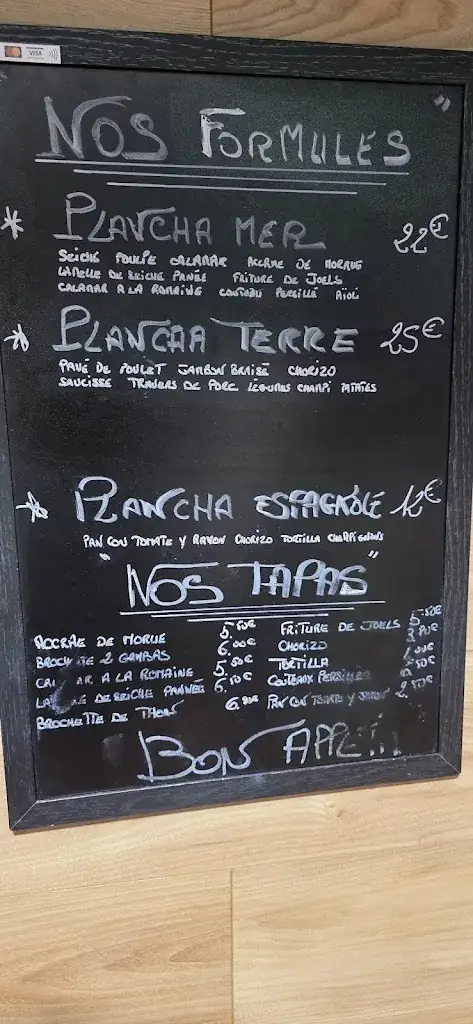 VISA
NOS FORMULES
PLANCHA MER 22€
SEICHE POULPE CALAMAR ACCRAE DE MORUE
LAMELLE DE SEICHE PANÉE FRITURE DE JOELS
CALAMAR A LA ROMAINE COUTEAU PERSILLÉ AIOLI
PLANCHA TERRE 25€
PAVÉ DE POULET JAMBON BRAISÉ CHORIZO
SAUCISSE TRAVERS DE PORC LÉGUMES CHAMPI
PLANCHA ESPAGNOLE 12€
PAN CON TOMATE Y CHORIZO TORTILLA CHAMPIGNONS
" NOS TAPAS "
ACCRAE DE MORUE 5.50€ FRITURE DE JOELS
BROCHETTE 2 GAMBAS 6.00€ CHORIZO
A LA ROMAINE 5.50€ TORTILLA
DE SEICHE PANNÉE 6.50€ COUTEAUX PERSILLÉS
BROCHETTE DE THON 6.90€ PAN CON TOMATE Y JAMON 2.50€
BON APPETIT